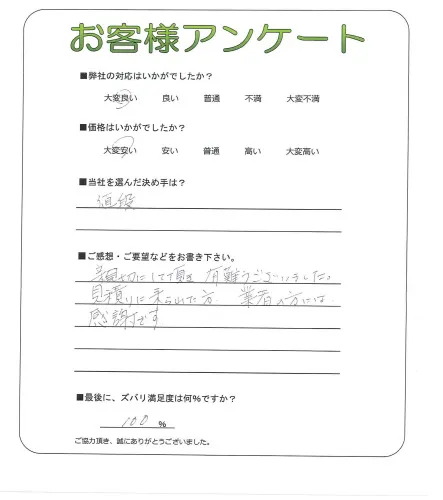 お客様アンケート
■弊社の対応はいかがでしたか？
大変良い 良い 普通 不満 大変不満
■価格はいかがでしたか？
大変安い 安い 普通 高い 大変高い
■当社を選んだ決め手は？
値段
■ご感想・ご要望などをお書き下さい。
親切にして頂き 有難うございました。
見積りに来られた方、業者の方には
感謝です
■最後に、ズバリ満足度は何％ですか？
100 ％
ご協力頂き、誠にありがとうございました。